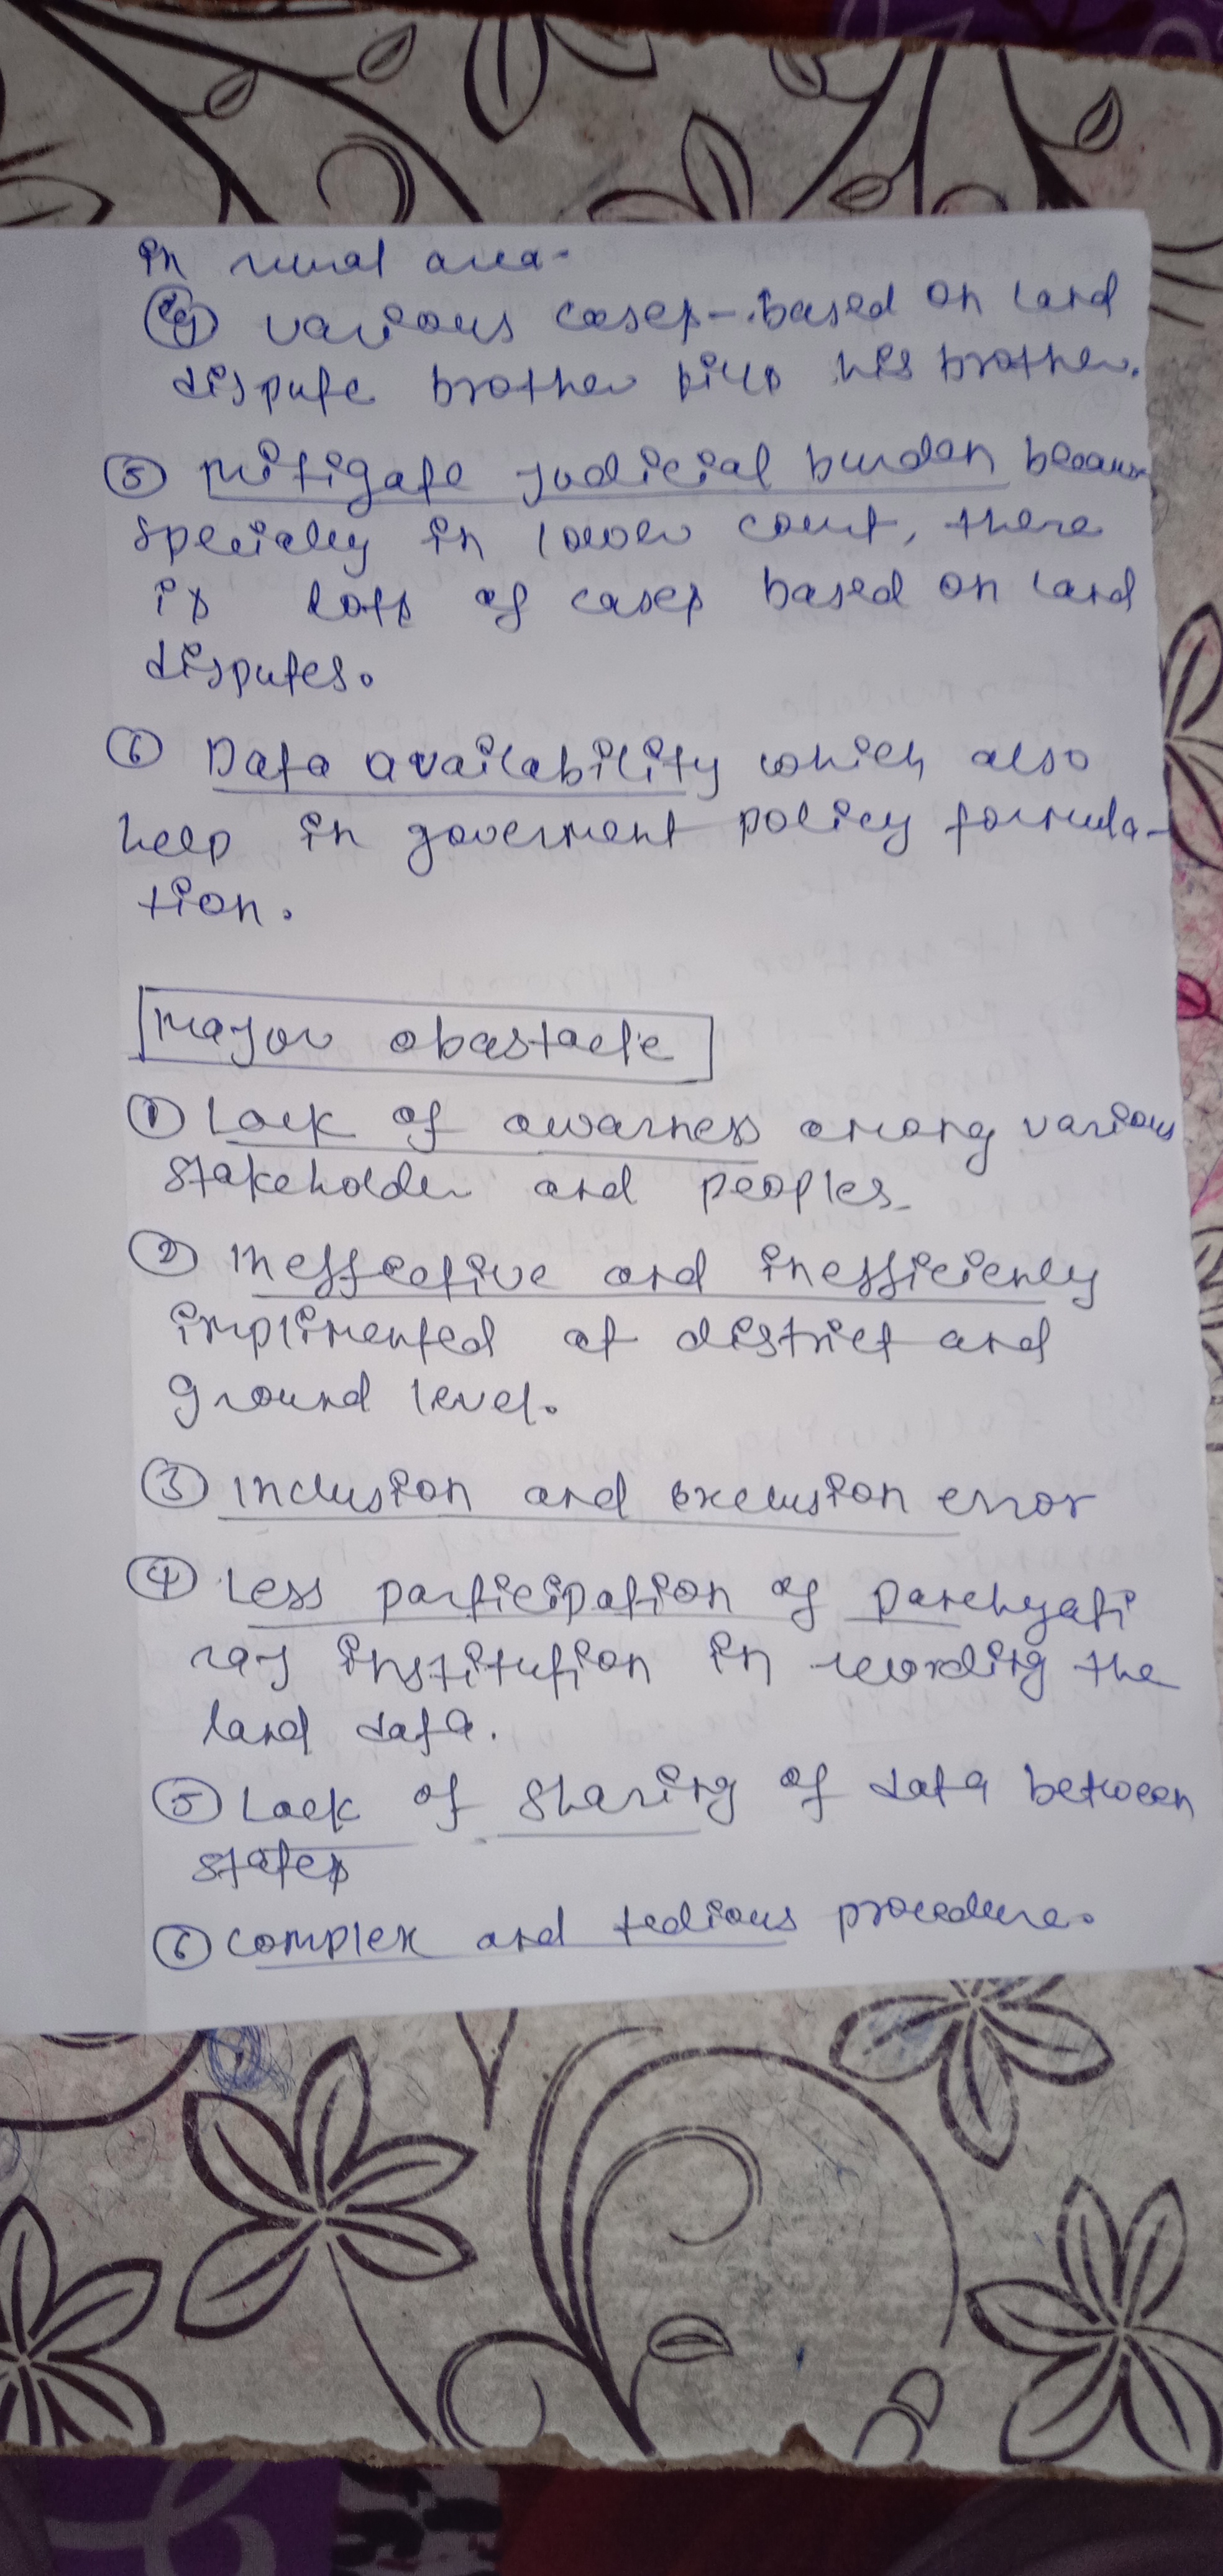 in rural area-
eg various cases-based on land
dispute brother kills his brother.
⑤ mitigate judicial burden because
specialy in lower court, there
is lots of cases based on land
disputes.
⑥ Data availability which also
help in goverment policy formula-
tion.
major obastacle
① Lack of awarness among various
stakeholder and peoples.
② ineffective and inefficiency
implimented at district and
ground level.
③ inclusion and exclusion error
④ Less participation of panchyati
raj institution in recording the
land data.
⑤ Lack of sharing of data between
states
⑥ complex and tedious procedure.